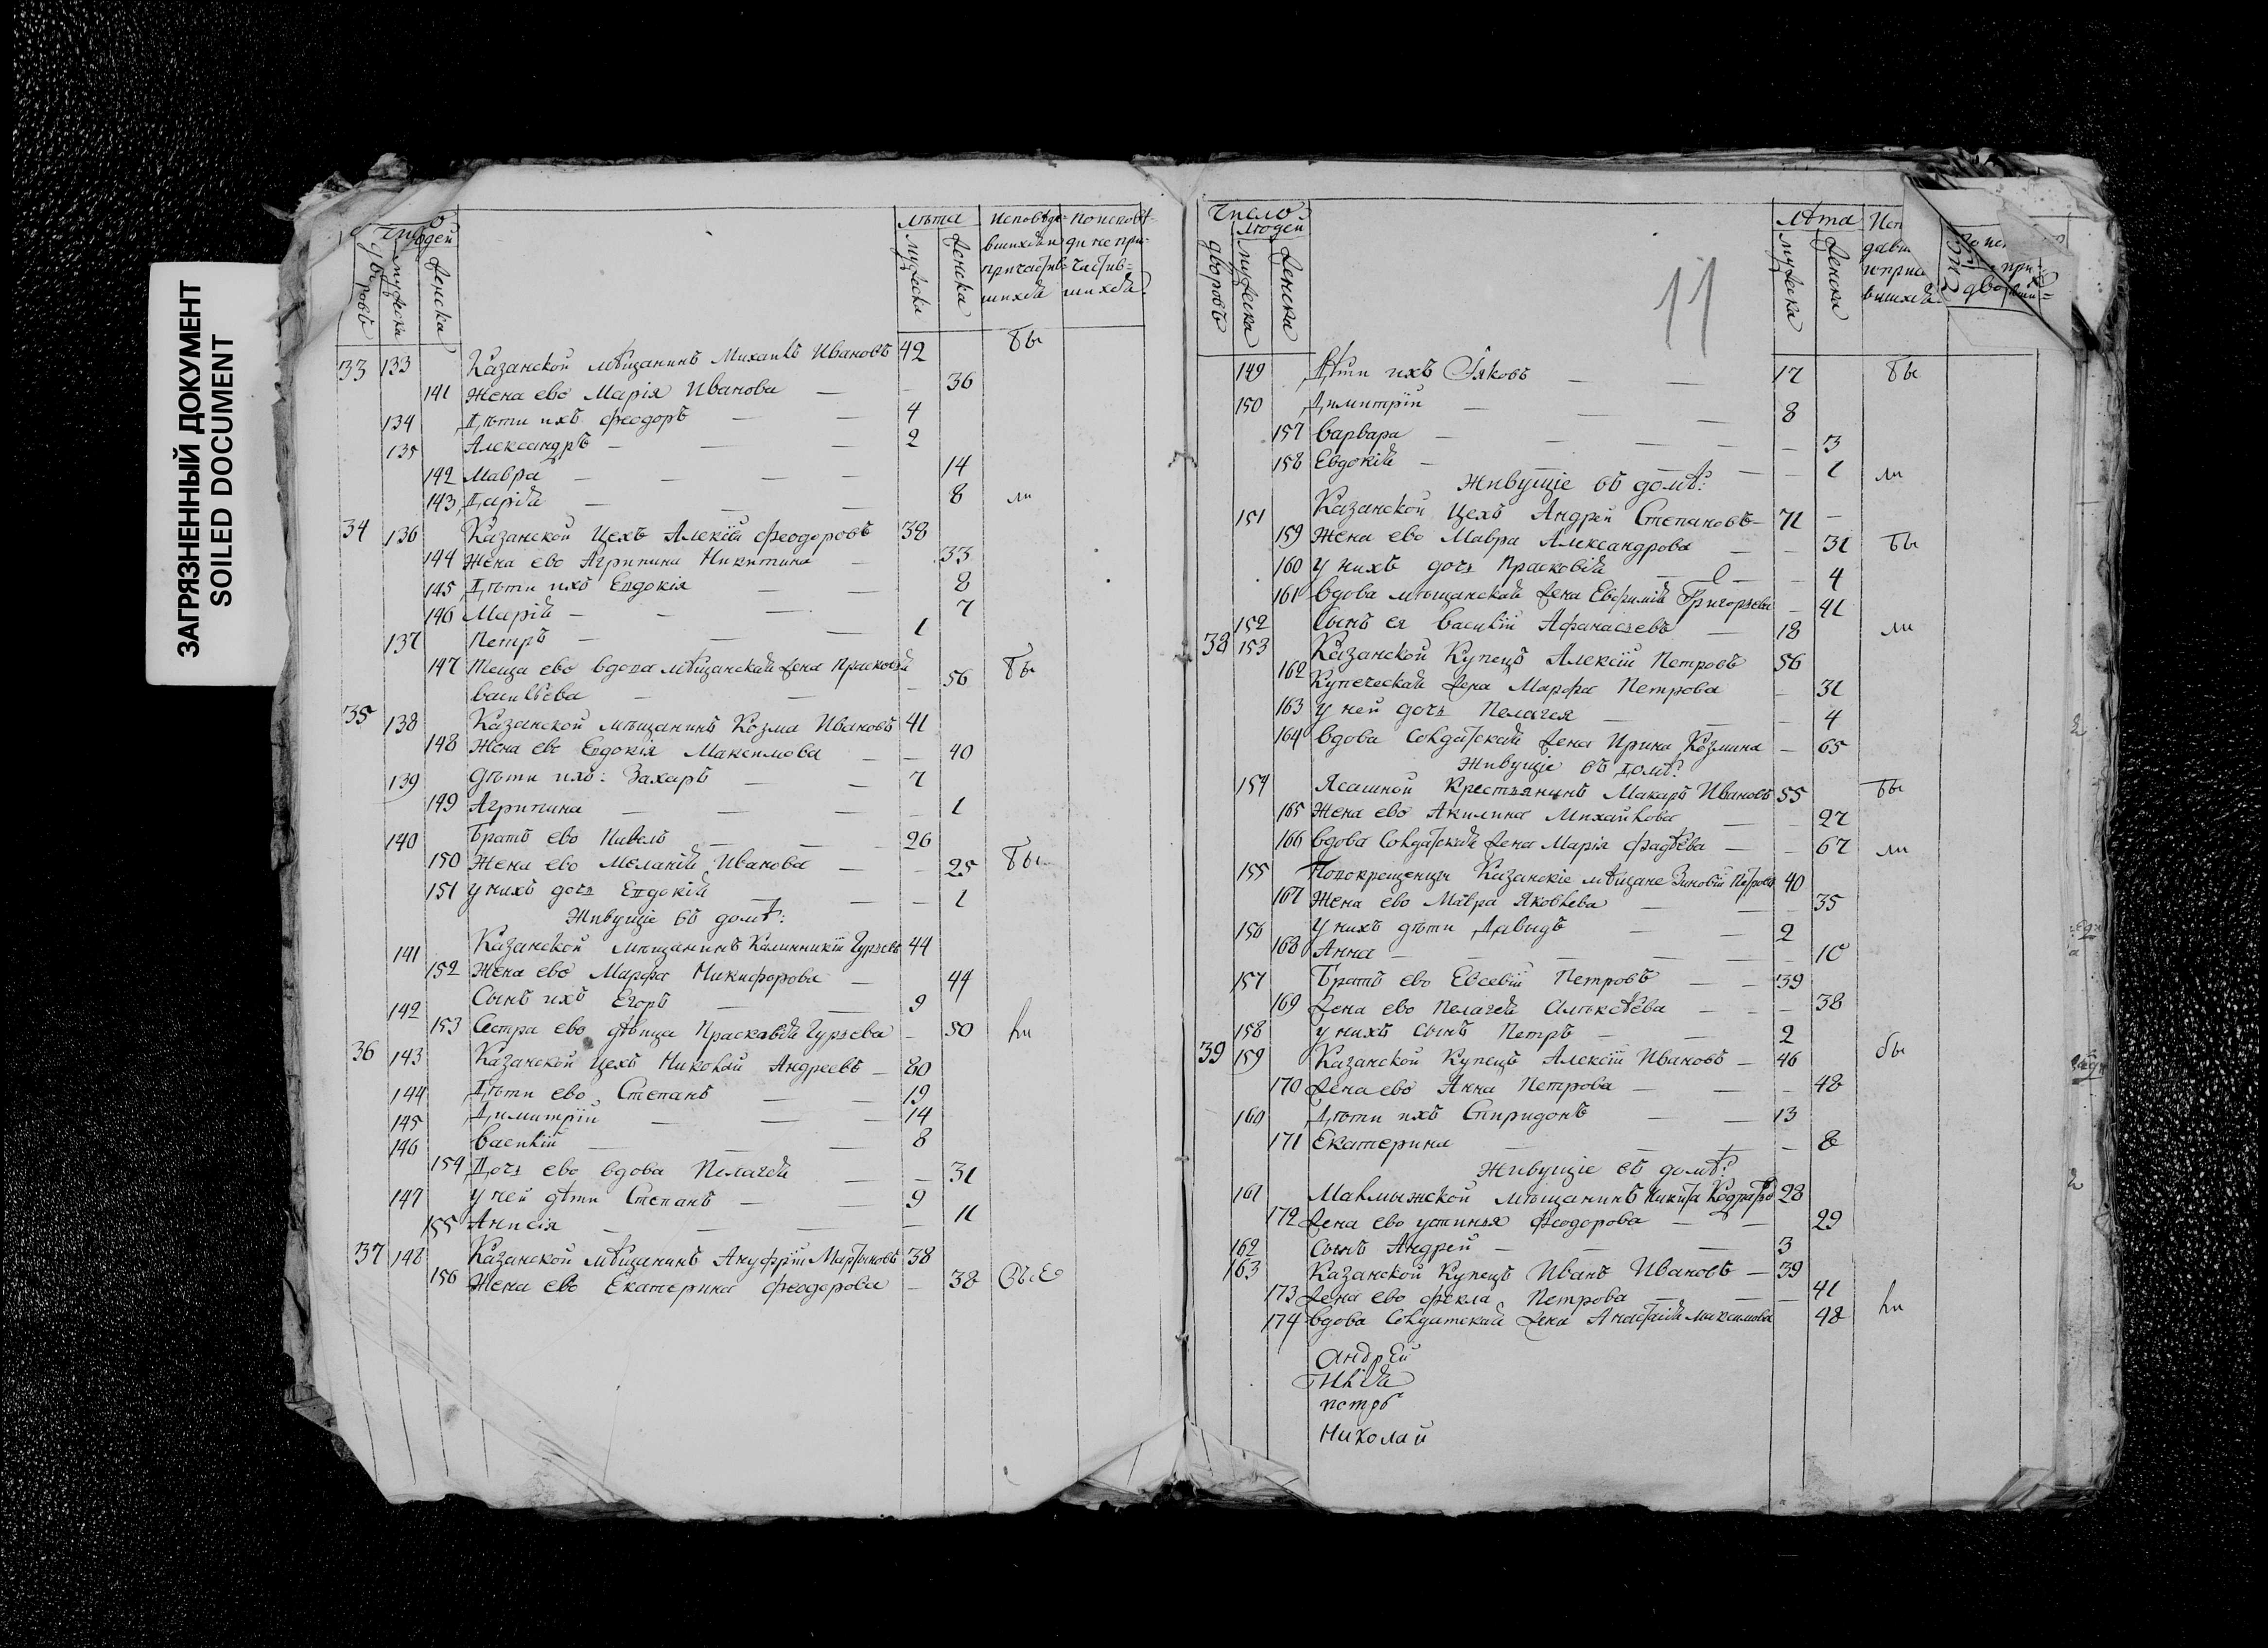 ЗАГРЯЗНЕННЫЙ ДОКУМЕНТ
SOILED DOCUMENT
людей
дворовъ
мужеска
женска
лѣта
мужеска
женска
Исповѣда= вшихся и причастив= шихся
По исповѣ= ди не при= частив= шихся
33 133 Казанской мѣщанинъ Михаилъ Ивановъ 42 бы
141 Жена ево Марія Иванова — 36
134 Дѣти ихъ Феодоръ — 4
135 Александръ — 2
142 Мавра — 14
143 Дарія — 8 ли
34 136 Казанской Цехъ Алексій Феодоровъ 38
144 Жена ево Агрипина Никитина — 33
145 Дѣти ихъ Евдокія — 8
146 Марія — 7
137 Петръ — 1
147 Теща ево вдова мѣщанская жена Прасковья
васильева — 56 бы
35 138 Казанской мѣщанинъ Козма Ивановъ 41
148 Жена ево Евдокія Максимова — 40
139 дѣти ихъ: Захаръ — 7
149 Агрипина — 1
140 Братъ ево Павелъ — 26
150 Жена ево Меланія Иванова — 25 бы
151 у нихъ дочь Евдокія — 1
Живущіе въ домѣ:
141 Казанской мѣщанинъ Каллиникій Гурьевъ 44
152 Жена ево Марфа Никифорова — 44
142 Сынъ ихъ Егоръ — 9
153 Сестра ево дѣвица Прасковія Гурьева — 50 ли
36 143 Казанской цехъ Николай Андреевъ — 80
144 Дѣти ево Степанъ — 19
145 Димитрій — 14
146 Василій — 8
154 Дочь ево вдова Пелагея — 31
147 у ней дѣти Степанъ — 9
155 Анисія — 11
37 148 Казанской мѣщанинъ Ануфрій Мартыновъ 38
156 Жена ево Екатерина Феодорова — 38
Число
людей
дворовъ
мужеска
женска
11
лѣта
мужеска
женска
149 Дѣти ихъ Іяковъ — 17 бы
150 Димитрій — 8
157 Варвара — 3
158 Евдокія — 1 ли
Живущіе въ домѣ:
151 Казанской Цехъ Андрей Степановъ — 71
159 Жена ево Мавра Александрова — 31 бы
160 у нихъ дочь Прасковія — 4
161 вдова мѣщанская жена Евфимія Григорьева — 41
152 Сынъ ея Василій Афанасьевъ — 18 ли
38 153 Казанской Купецъ Алексій Петровъ 56
162 Купеческая жена Марфа Петрова — 31
163 у ней дочь Пелагея — 4
164 вдова Солдатская жена Ирина Козмина — 65
Живущіе въ домѣ:
154 Ясашной Крестьянинъ Макаръ Ивановъ 55 бы
165 Жена ево Акилина Михайлова — 27
166 вдова Солдатская жена Марія Фадѣева — 67 ли
155 Новокрещенцы Казанскіе мѣщане Зиновій Петровъ 40
167 Жена ево Мавра Яковлева — 35
156 У нихъ дѣти Давыдъ — 2
168 Анна — 10
157 Братъ ево Евсевій Петровъ — 39
169 жена ево Пелагея Алексѣева — 38
158 у нихъ сынъ Петръ — 2
39 159 Казанской Купецъ Алексій Ивановъ — 46 бы
170 жена ево Анна Петрова — 48
160 Дѣти ихъ Спиридонъ — 13
171 Екатерина — 8
Живущіе въ домѣ:
161 Малмыжской мѣщанинъ Никита 28
172 жена ево устинья Феодорова — 29
162 сынъ Андрей — 3
163 Казанской Купецъ Иванъ Ивановъ — 39
173 жена ево Фекла Петрова — 41
174 вдова Солдатская жена Анастасія Максимова 48 ли
Андрей
Илья
петръ
Николай